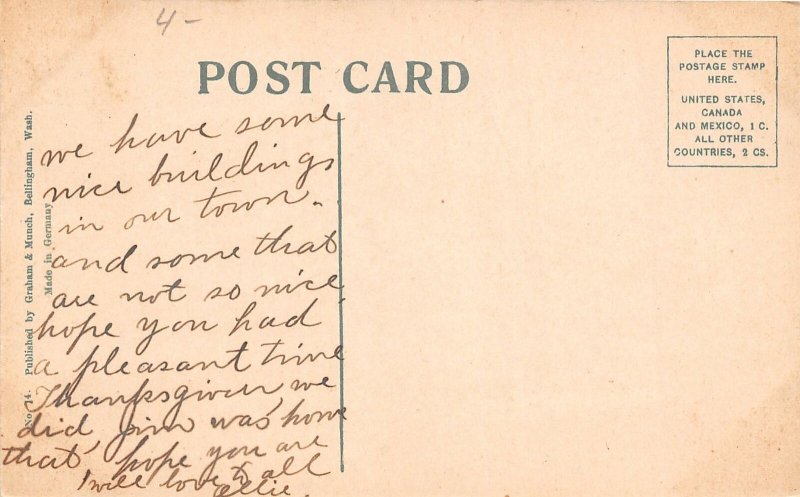 4-
POST CARD
PLACE THE
POSTAGE STAMP
HERE.
UNITED STATES,
CANADA
AND MEXICO, 1 C.
ALL OTHER
COUNTRIES, 2 CS.
No. 14. Published by Graham & Munch, Bellingham, Wash.
Made in Germany
we have some
nice buildings
in our town.
and some that
are not so nice
hope you had
a pleasant time
Thanksgiven, we
did, jim was home
that hope you are
well love to all
Ellie.